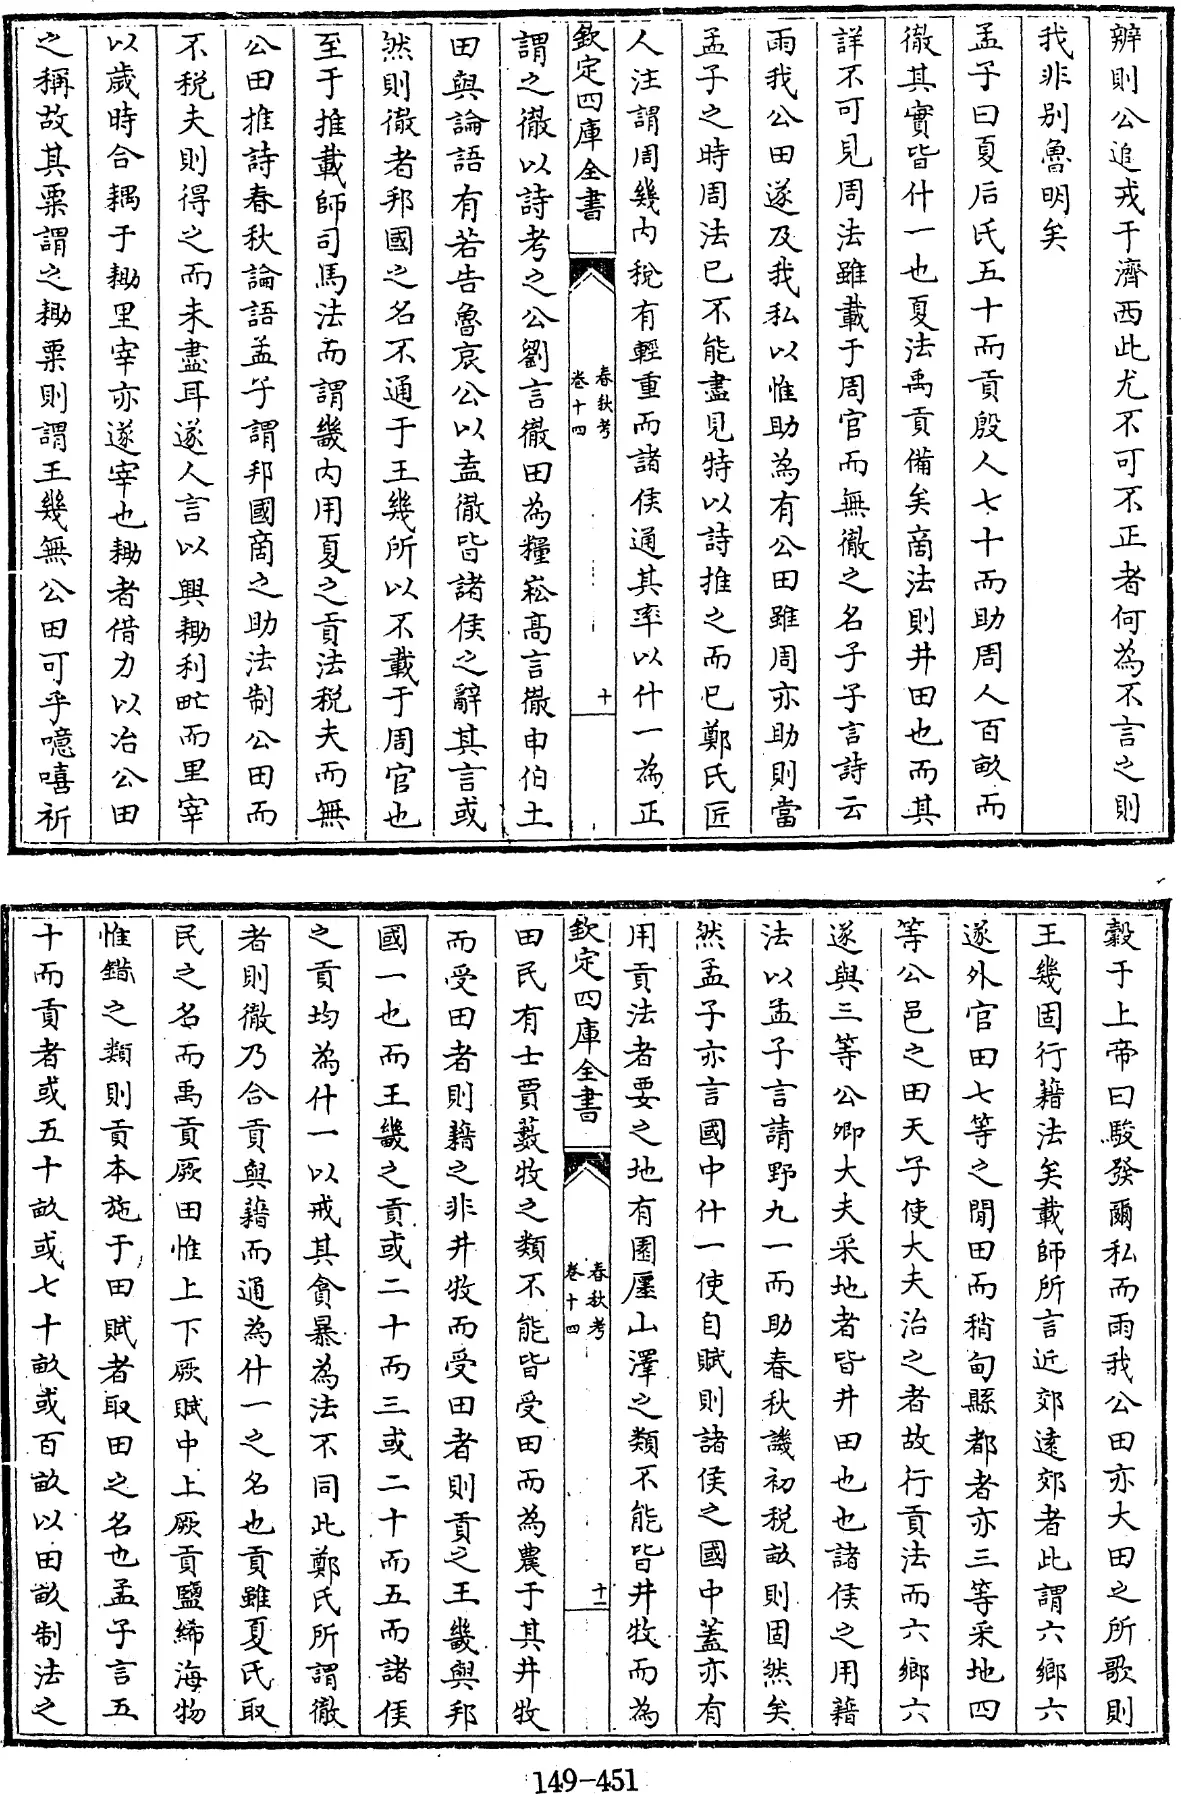 辨則公追戎于濟西此尤不可不正者何為不言之則
我非別魯明矣
孟子曰夏后氏五十而貢殷人七十而助周人百畝而
徹其實皆什一也夏法禹貢備矣商法則井田也而其
詳不可見周法雖載于周官而無徹之名子子言詩云
雨我公田遂及我私以惟助為有公田雖周亦助則當
孟子之時周法已不能盡見特以詩推之而已鄭氏匠
人注謂周畿内稅有輕重而諸侯通其率以什一為正
欽定四庫全書
春秋考
卷十四
十
謂之徹以詩考之公劉言徹田為糧崧高言徹申伯土
田與論語有若告魯哀公以盍徹皆諸侯之辭其言或
然則徹者邦國之名不通于王畿所以不載于周官也
至于推載師司馬法而謂畿内用夏之貢法稅夫而無
公田推詩春秋論語孟子謂邦國商之助法制公田而
不稅夫則得之而未盡耳遂人言以興耡利甿而里宰
以歲時合耦于耡里宰亦遂宰也耡者借力以治公田
之稱故其粟謂之耡粟則謂王畿無公田可乎噫嘻祈
穀于上帝曰駿發爾私而雨我公田亦大田之所歌則
王畿固行藉法矣載師所言近郊逺郊者此謂六鄉六
遂外官田七等之閒田而稍甸縣都者亦三等采地四
等公邑之田天子使大夫治之者故行貢法而六鄉六
遂與三等公卿大夫采地者皆井田也也諸侯之用藉
法以孟子言請野九一而助春秋譏初稅畝則固然矣
然孟子亦言國中什一使自賦則諸侯之國中蓋亦有
用貢法者要之地有園廛山澤之類不能皆井牧而為
欽定四庫全書
春秋考
卷十四
十一
田民有士賈藪牧之類不能皆受田而為農于其井牧
而受田者則藉之非井牧而受田者則貢之王畿與邦
國一也而王畿之貢或二十而三或二十而五而諸侯
之貢均為什一以戒其貪暴為法不同此鄭氏所謂徹
者則徹乃合貢與藉而通為什一之名也貢雖夏氏取
民之名而禹貢厥田惟上下厥賦中上厥貢鹽絺海物
惟錯之類則貢本施于田賦者取田之名也孟子言五
十而貢者或五十畝或七十畝或百畝以田畝制法之
149-451